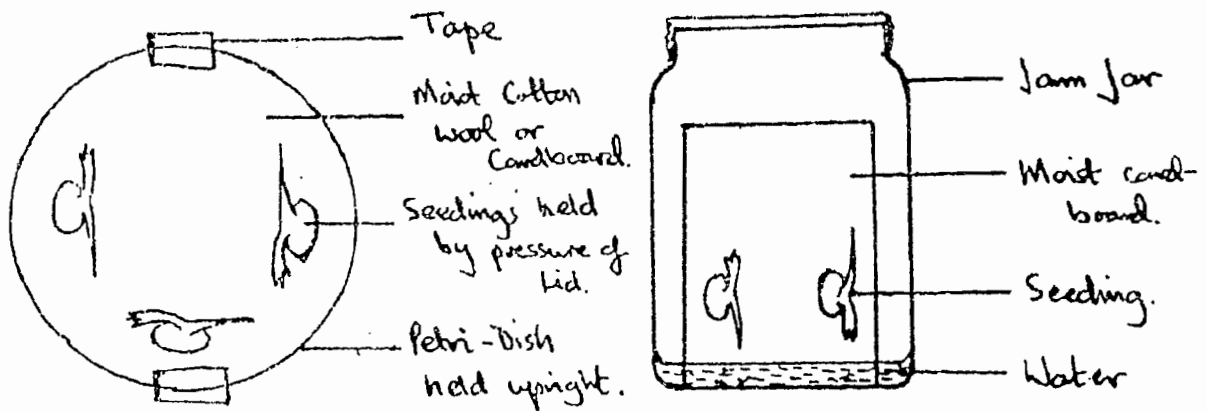 Tape
Moist Cotton
wool or
Cardboard.
Seedings held
by pressure of
Lid.
Petri-Dish
held upright.
Jam Jar
Moist card-
board.
Seeding.
Water